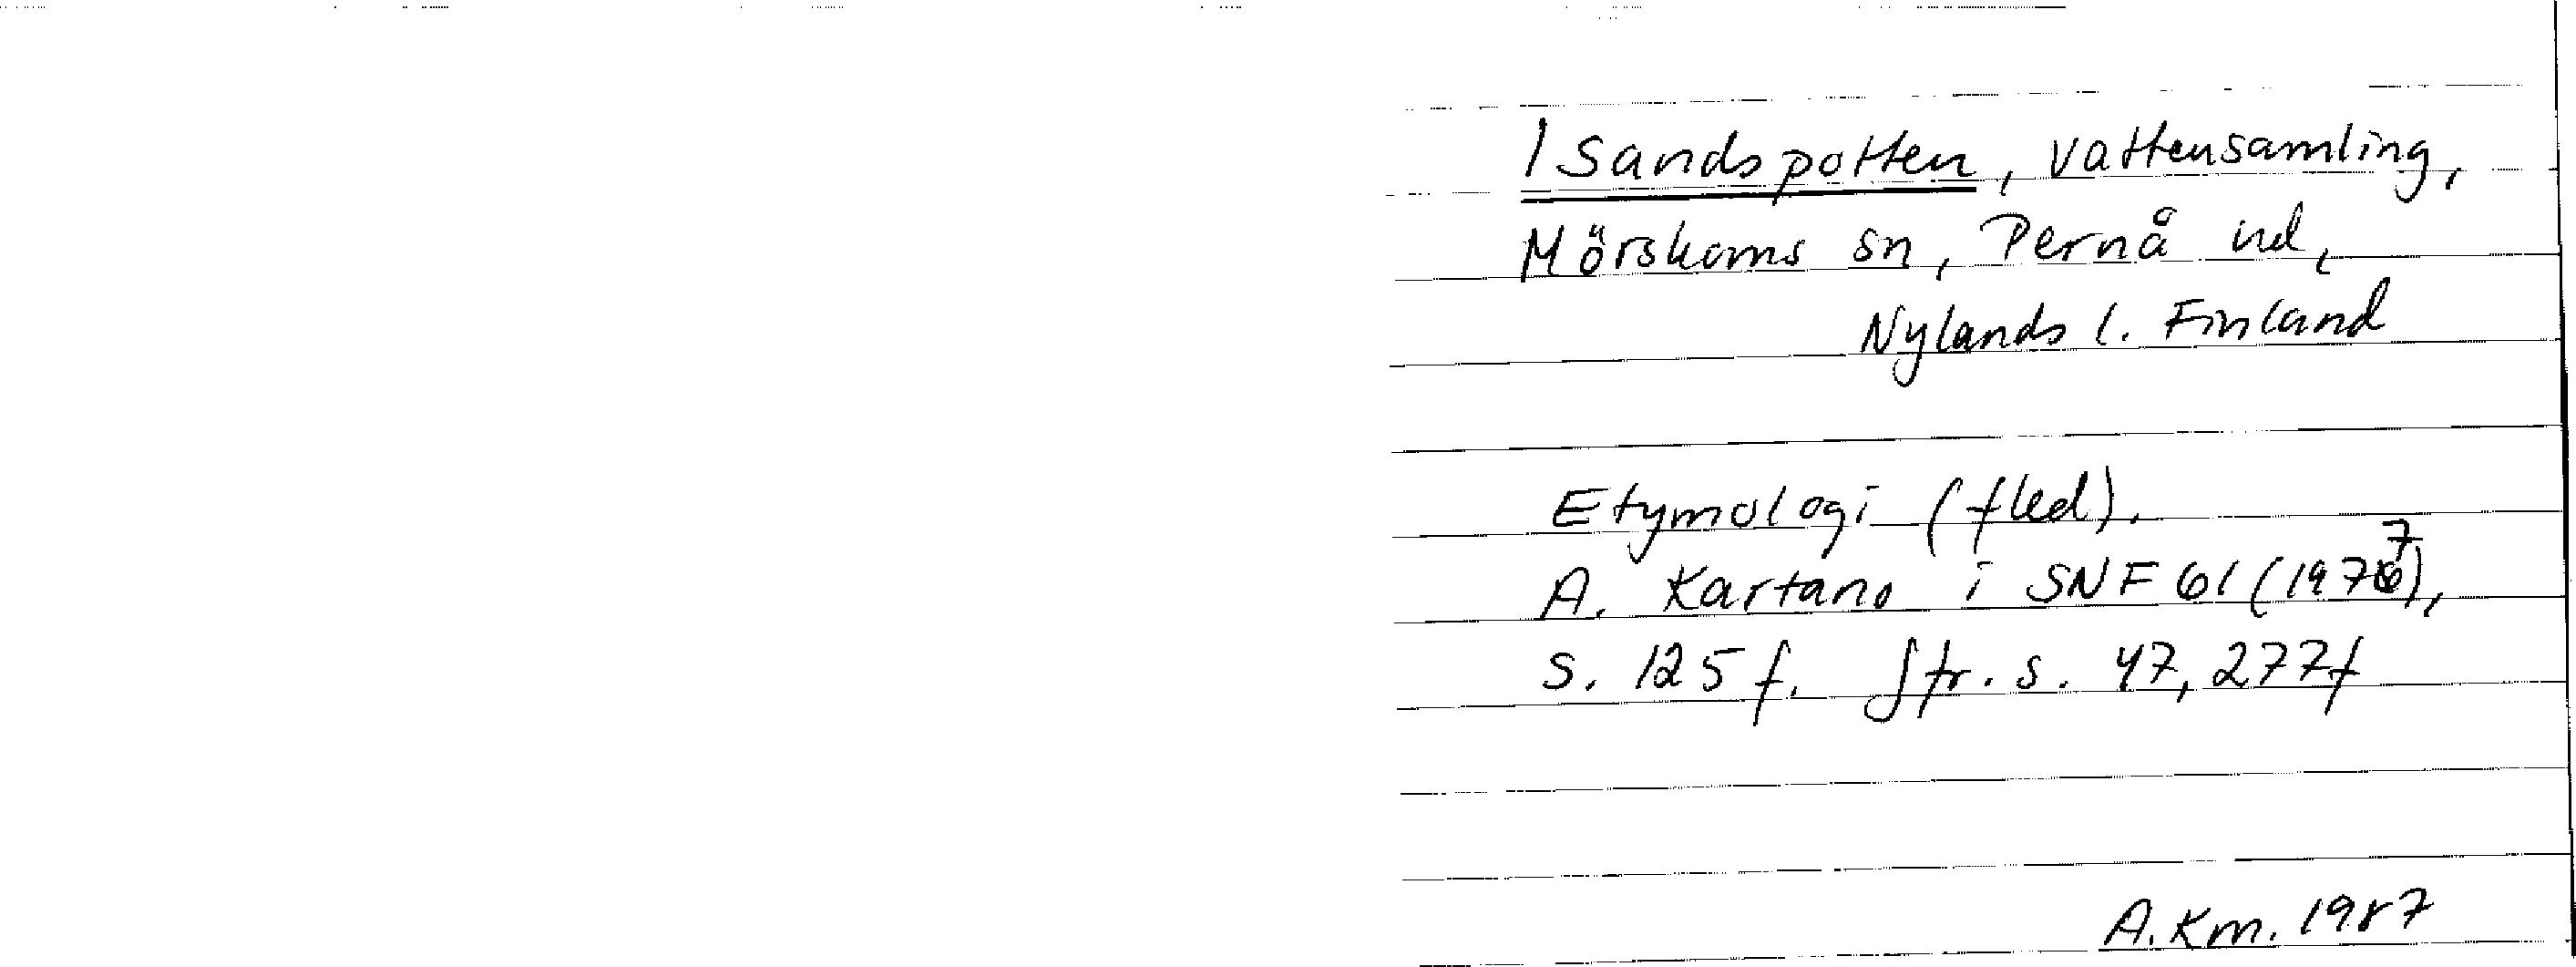 Isandspotten, vattensamling,
Mörskoms sn, Pernå hd,
Nylands l. Finland
Etymologi (fled).
A. Kartano i SNF 61 (1977),
s. 125 f. Jfr. s. 47, 277f
A. Km. 1987